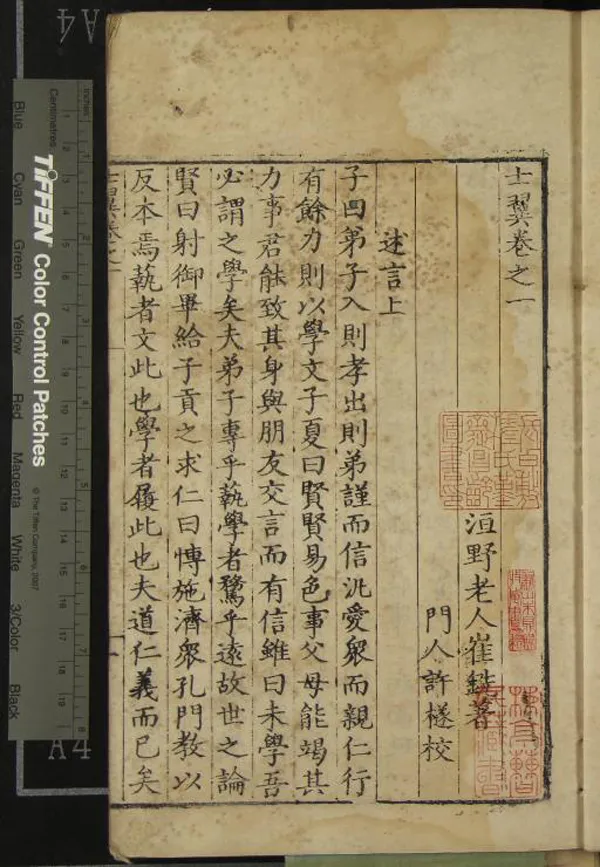 士翼卷之一
洹野老人崔銑著
門人許檖校
述言上
子曰弟子入則孝出則弟謹而信汎愛衆而親仁行
有餘力則以學文子夏曰賢賢易色事父母能竭其
力事君能致其身與朋友交言而有信雖曰未學吾
必謂之學矣夫弟子專乎蓺學者騖乎遠故世之論
賢曰射御畢給子貢之求仁曰博施濟衆孔門教以
反本焉蓺者文此也學者履此也夫道仁義而已矣
士翼卷之一
一
A4
A4
Inches
1 2 3 4 5 6 7 8
Centimetres
1 2 3 4 5 6 7 8 9 10 11 12 13 14 15 16 17 18 19
TIFFEN Color Control Patches
© The Tiffen Company, 2007
Blue Cyan Green Yellow Red Magenta White 3/Color Black